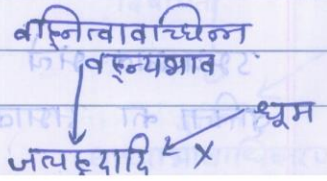 वह्नित्वावच्छिन्न
वह्न्यभाव
धूम
जलह्रदादि X